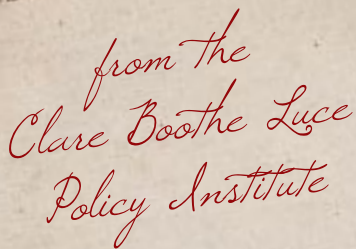 from the
Clare Boothe Luce
Policy Institute